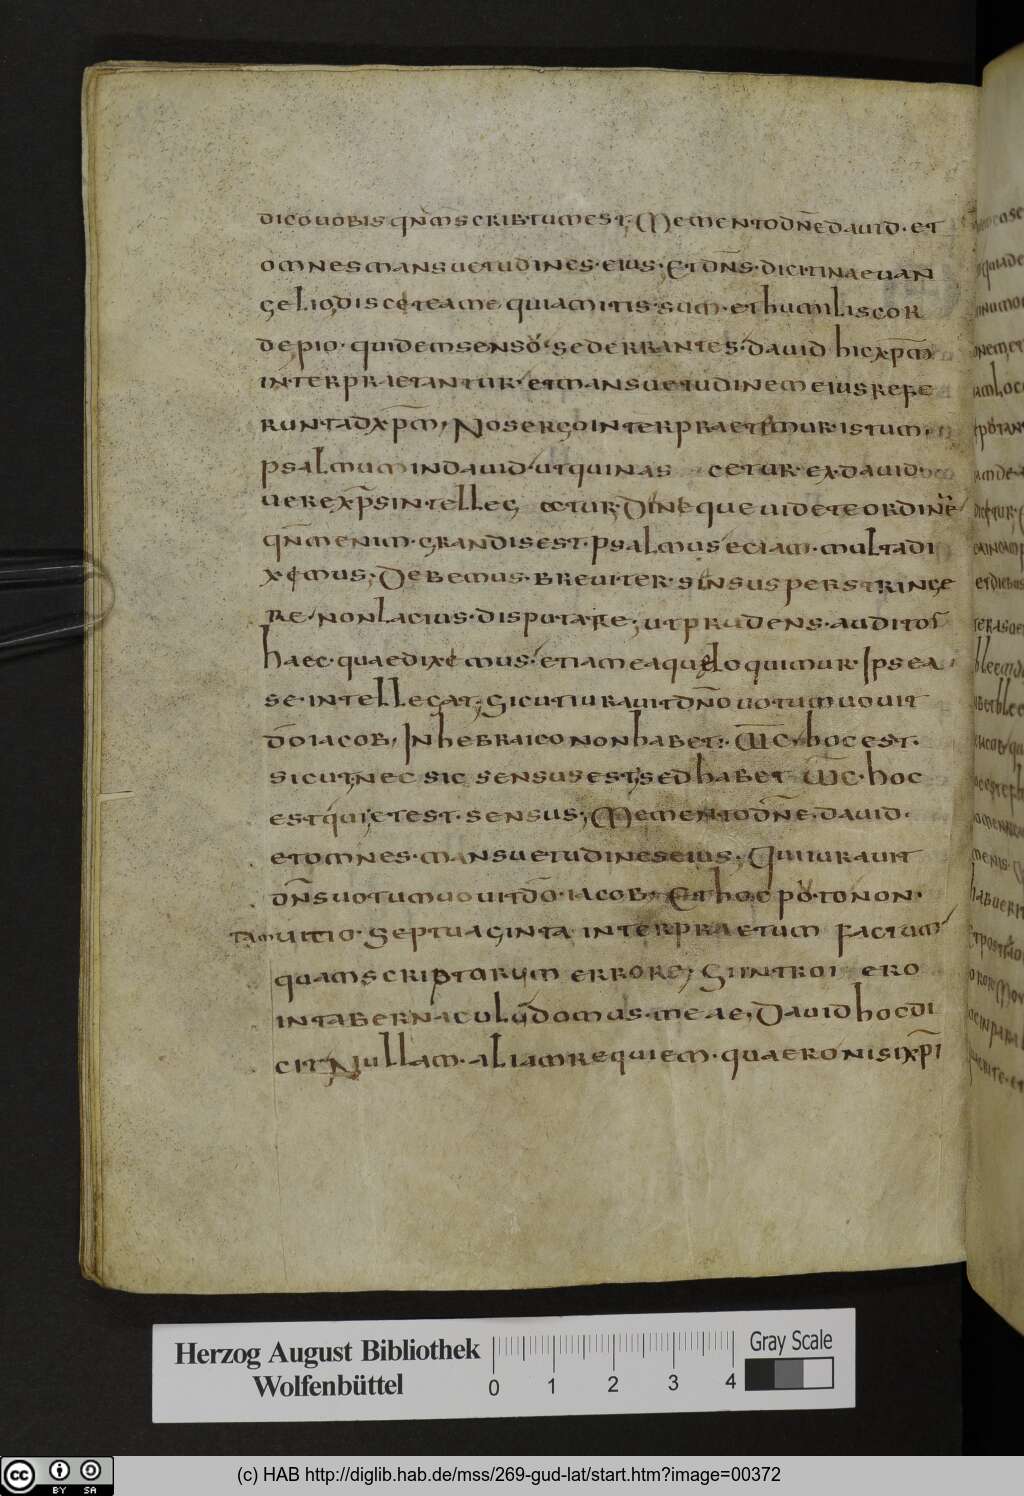 dico uobis qm̄ scribtum est; Memento dn̄e dauid · et
omnes mansuetudines · eius · Et dn̄s · dicit in aeuan
gelio; discite a me quia mitis · sum · et humilis cor
de; pio · quidem senso · sed errantes · dauid hic xp̄m
interpraetantur · et mansuetudinem eius refe
runt ad xp̄m, Nos ergo interpraetemur · istum,
psalmum in dauid · ut qui nascetur · ex · dauid ·
uere xp̄s intellegatur;
qm̄ enim · grandis est · psalmus eciam · multa di
ximus; Debemus · breuiter · sensus perstringe
re · non lacius · disputare; ut prudens · auditor
haec · quae diximus · etiam ea quae loquimur · Ipse a
se · intellegat; Sicut iurauit dn̄o uotum uouit
dō iacob, In hebraico non habet · SIC, hoc est ·
sicut; nec sic sensus est; sed habet SIC · hoc
est qui; et est · sensus; Memento dn̄e · dauid ·
et omnes · mansuetudines eius; Qui iurauit
dn̄s uotum uouit dō · iacob, Et hoc non ·
tam uitio · Septuaginta interpraetum factum
quam scriptorum errore; Si introiero
in tabernaculum domus · meae, Dauid hoc di
cit Nullam · aliam requiem · quaero nisi xp̄i
Herzog August Bibliothek
Wolfenbüttel
0 1 2 3 4
Gray Scale
cc BY SA
(c) HAB http://diglib.hab.de/mss/269-gud-lat/start.htm?image=00372